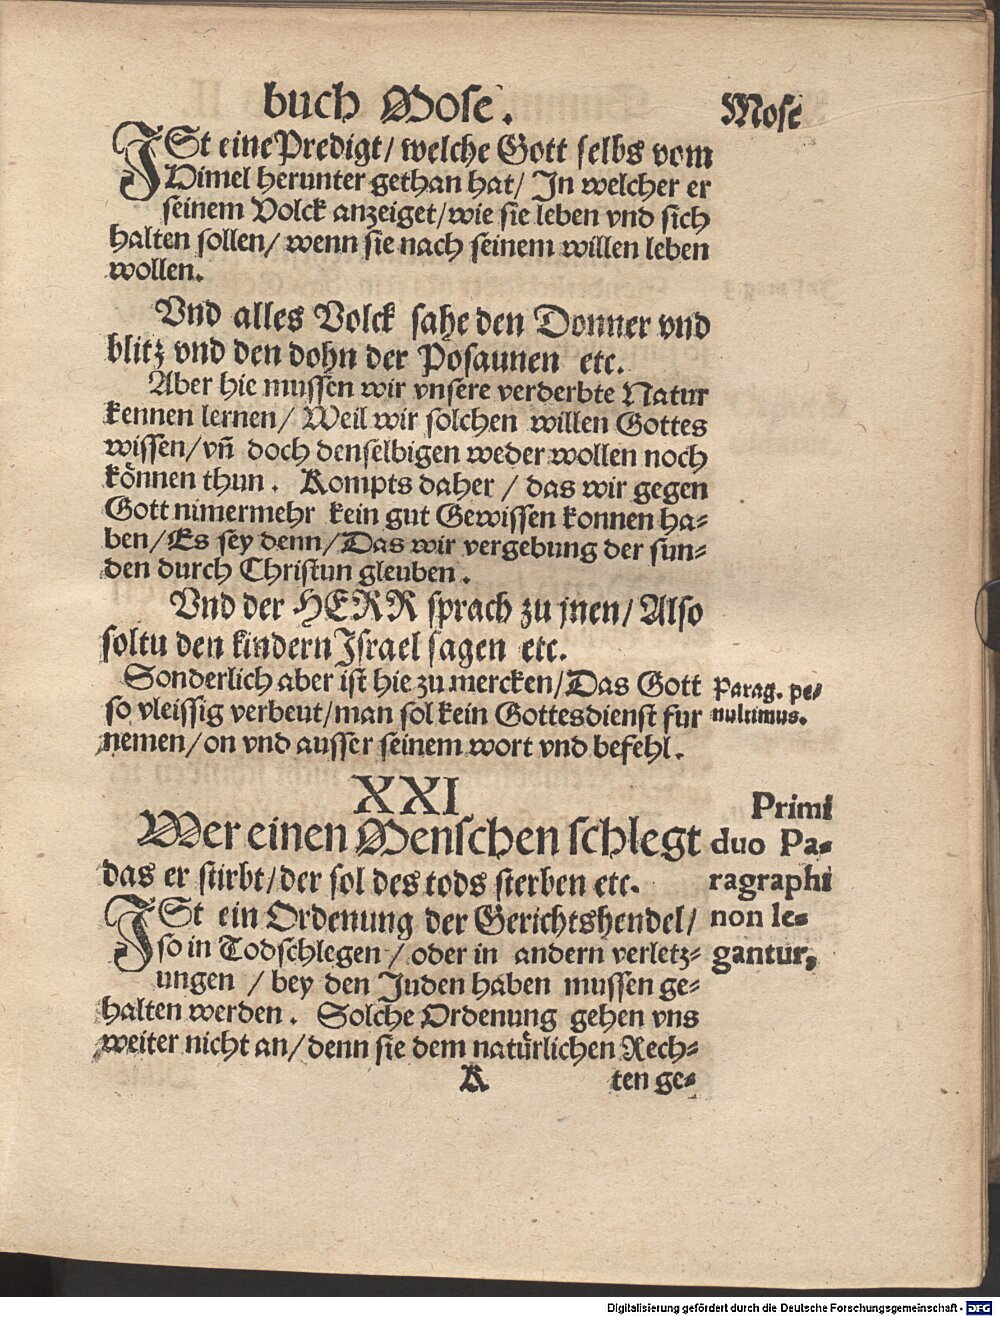 buch Mose.
Mose
ISt eine Predigt/ welche Gott selbs vom
Himel herunter gethan hat/ In welcher er
seinem Volck anzeiget/wie sie leben vnd sich
halten sollen/ wenn sie nach seinem willen leben
wollen.
Vnd alles Volck sahe den Donner vnd
blitz vnd den dohn der Posaunen etc.
Aber hie mussen wir vnsere verderbte Natur
kennen lernen/ Weil wir solchen willen Gottes
wissen/vn̄ doch denselbigen weder wollen noch
können thun. Kompts daher / das wir gegen
Gott nimermehr kein gut Gewissen konnen ha⸗
ben/Es sey denn/Das wir vergebung der sun⸗
den durch Christun gleuben.
Vnd der HERR sprach zu jnen/ Also
soltu den kindern Israel sagen etc.
Sonderlich aber ist hie zu mercken/Das Gott
so vleissig verbeut/man sol kein Gottesdienst fur
nemen/on vnd ausser seinem wort vnd befehl.
Parag. pe⸗
nultimus.
XXI
Wer einen Menschen schlegt
das er stirbt/der sol des tods sterben etc.
ISt ein Ordenung der Gerichtshendel/
so in Todschlegen / oder in andern verletz⸗
ungen / bey den Juden haben mussen ge⸗
halten werden. Solche Ordenung gehen vns
weiter nicht an/denn sie dem natürlichen Rech⸗
Primi
duo Pa⸗
ragraphi
non le⸗
gantur,
K
ten ge⸗
Digitalisierung gefördert durch die Deutsche Forschungsgemeinschaft - DFG